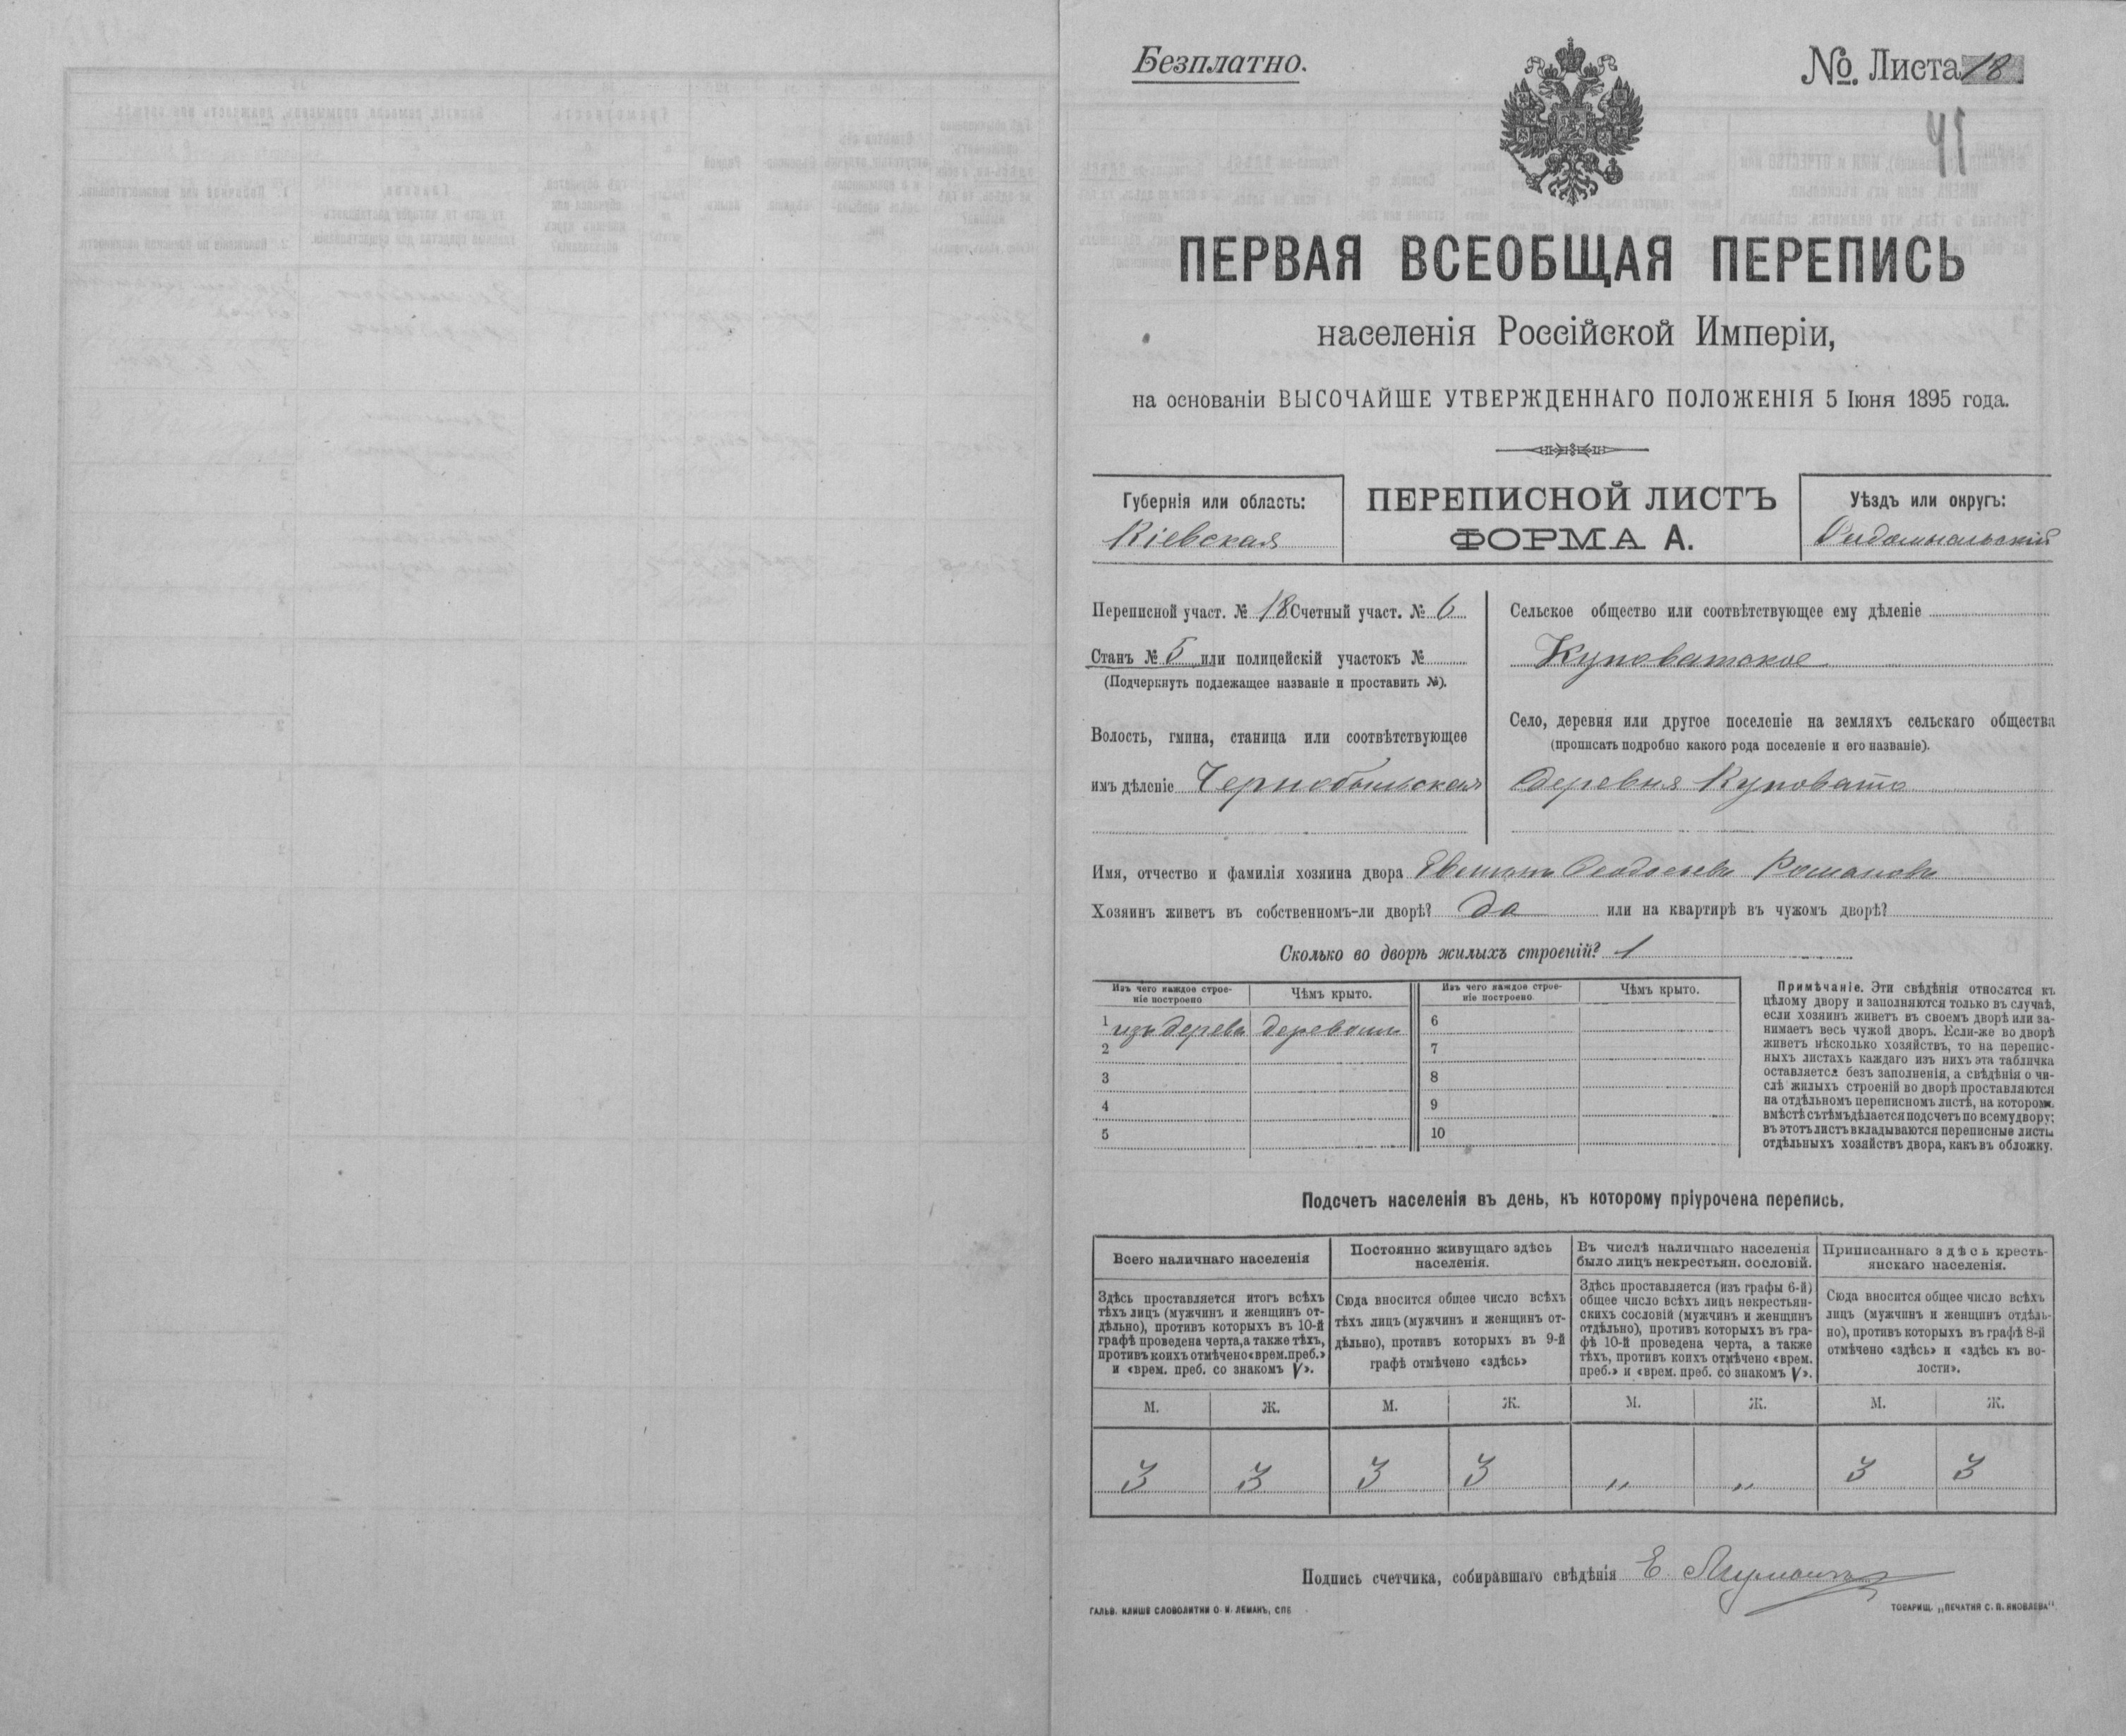 Безплатно.
№. Листа 18
41
ПЕРВАЯ ВСЕОБЩАЯ ПЕРЕПИСЬ
населенія Россійской Имперіи,
на основаніи ВЫСОЧАЙШЕ УТВЕРЖДЕННАГО ПОЛОЖЕНІЯ 5 Іюня 1895 года.
Губернія или область:
Кіевская
ПЕРЕПИСНОЙ ЛИСТЪ
ФОРМА А.
Уѣздъ или округъ:
Радомысльскій
Переписной участ. № 18 Счетный участ. № 6
Станъ № 5 или полицейскій участокъ №
(Подчеркнуть подлежащее названіе и проставить №).
Волость, гмина, станица или соотвѣтствующее
имъ дѣленіе Чернобыльская
Сельское общество или соотвѣтствующее ему дѣленіе
Куповатское
Село, деревня или другое поселеніе на земляхъ сельскаго общества
(прописать подробно какого рода поселеніе и его названіе).
деревня Куповато
Имя, отчество и фамилія хозяина двора Романовъ
Хозяинъ живетъ въ собственномъ-ли дворѣ? да или на квартирѣ въ чужомъ дворѣ?
Сколько во дворѣ жилыхъ строеній? 1
Изъ чего каждое строе-
ніе построено
Чѣмъ крыто.
Изъ чего каждое строе-
ніе построено
Чѣмъ крыто.
1 изъ дерева деревомъ 6
2 7
3 8
4 9
5 10
Примѣчаніе. Эти свѣдѣнія относятся къ
цѣлому двору и заполняются только въ случаѣ,
если хозяинъ живетъ въ своемъ дворѣ или за-
нимаетъ весь чужой дворъ. Если-же во дворѣ
живетъ нѣсколько хозяйствъ, то на перепис-
ныхъ листахъ каждаго изъ нихъ эта табличка
оставляется безъ заполненія, а свѣдѣнія о чи-
слѣ жилыхъ строеній во дворѣ проставляются
на отдѣльномъ переписномъ листѣ, на которомъ
вмѣстѣ съ тѣмъ дѣлается подсчетъ по всему двору;
въ этотъ листъ вкладываются переписные листы
отдѣльныхъ хозяйствъ двора, какъ въ обложку.
Подсчетъ населенія въ день, къ которому пріурочена перепись.
Всего наличнаго населенія
Здѣсь проставляется итогъ всѣхъ
тѣхъ лицъ (мужчинъ и женщинъ от-
дѣльно), противъ которыхъ въ 10-й
графѣ проведена черта, а также тѣхъ,
противъ коихъ отмѣчено «врем. преб.»
и «врем. преб. со знакомъ V».
Постоянно живущаго здѣсь
населенія.
Сюда вносится общее число всѣхъ
тѣхъ лицъ (мужчинъ и женщинъ от-
дѣльно), противъ которыхъ въ 9-й
графѣ отмѣчено «здѣсь»
Въ числѣ наличнаго населенія
было лицъ некрестьян. сословій.
Здѣсь проставляется (изъ графы 6-й)
общее число всѣхъ лицъ некрестьян-
скихъ сословій (мужчинъ и женщинъ
отдѣльно), противъ которыхъ въ гра-
фѣ 10-й проведена черта, а также
тѣхъ, противъ коихъ отмѣчено «врем.
преб.» и «врем. преб. со знакомъ V».
Приписаннаго здѣсь кресть-
янскаго населенія.
Сюда вносится общее число всѣхъ
лицъ (мужчинъ и женщинъ отдѣль-
но), противъ которыхъ въ графѣ 8-й
отмѣчено «здѣсь» и «здѣсь къ во-
лости».
М. Ж. М. Ж. М. Ж. М. Ж.
3 3 3 3 „ „ 3 3
Подпись счетчика, собиравшаго свѣдѣнія Е.
ГАЛЬВ. КЛИШЕ СЛОВОЛИТНИ О. И. ЛЕМАНЪ, СПБ
ТОВАРИЩ. „ПЕЧАТНЯ С. П. ЯКОВЛЕВА".